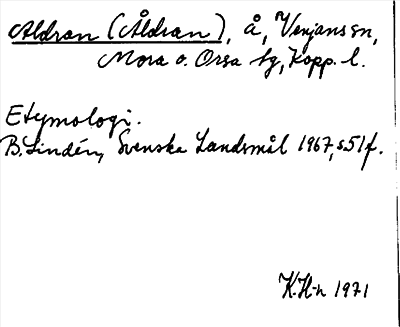 Aldran (Åldran), å, Venjans sn,
Mora o. Orsa tg, Kopp. l.
Etymologi.
B. Lindén, Svenska Landsmål 1967, s. 51 f.
K. H-n 1971